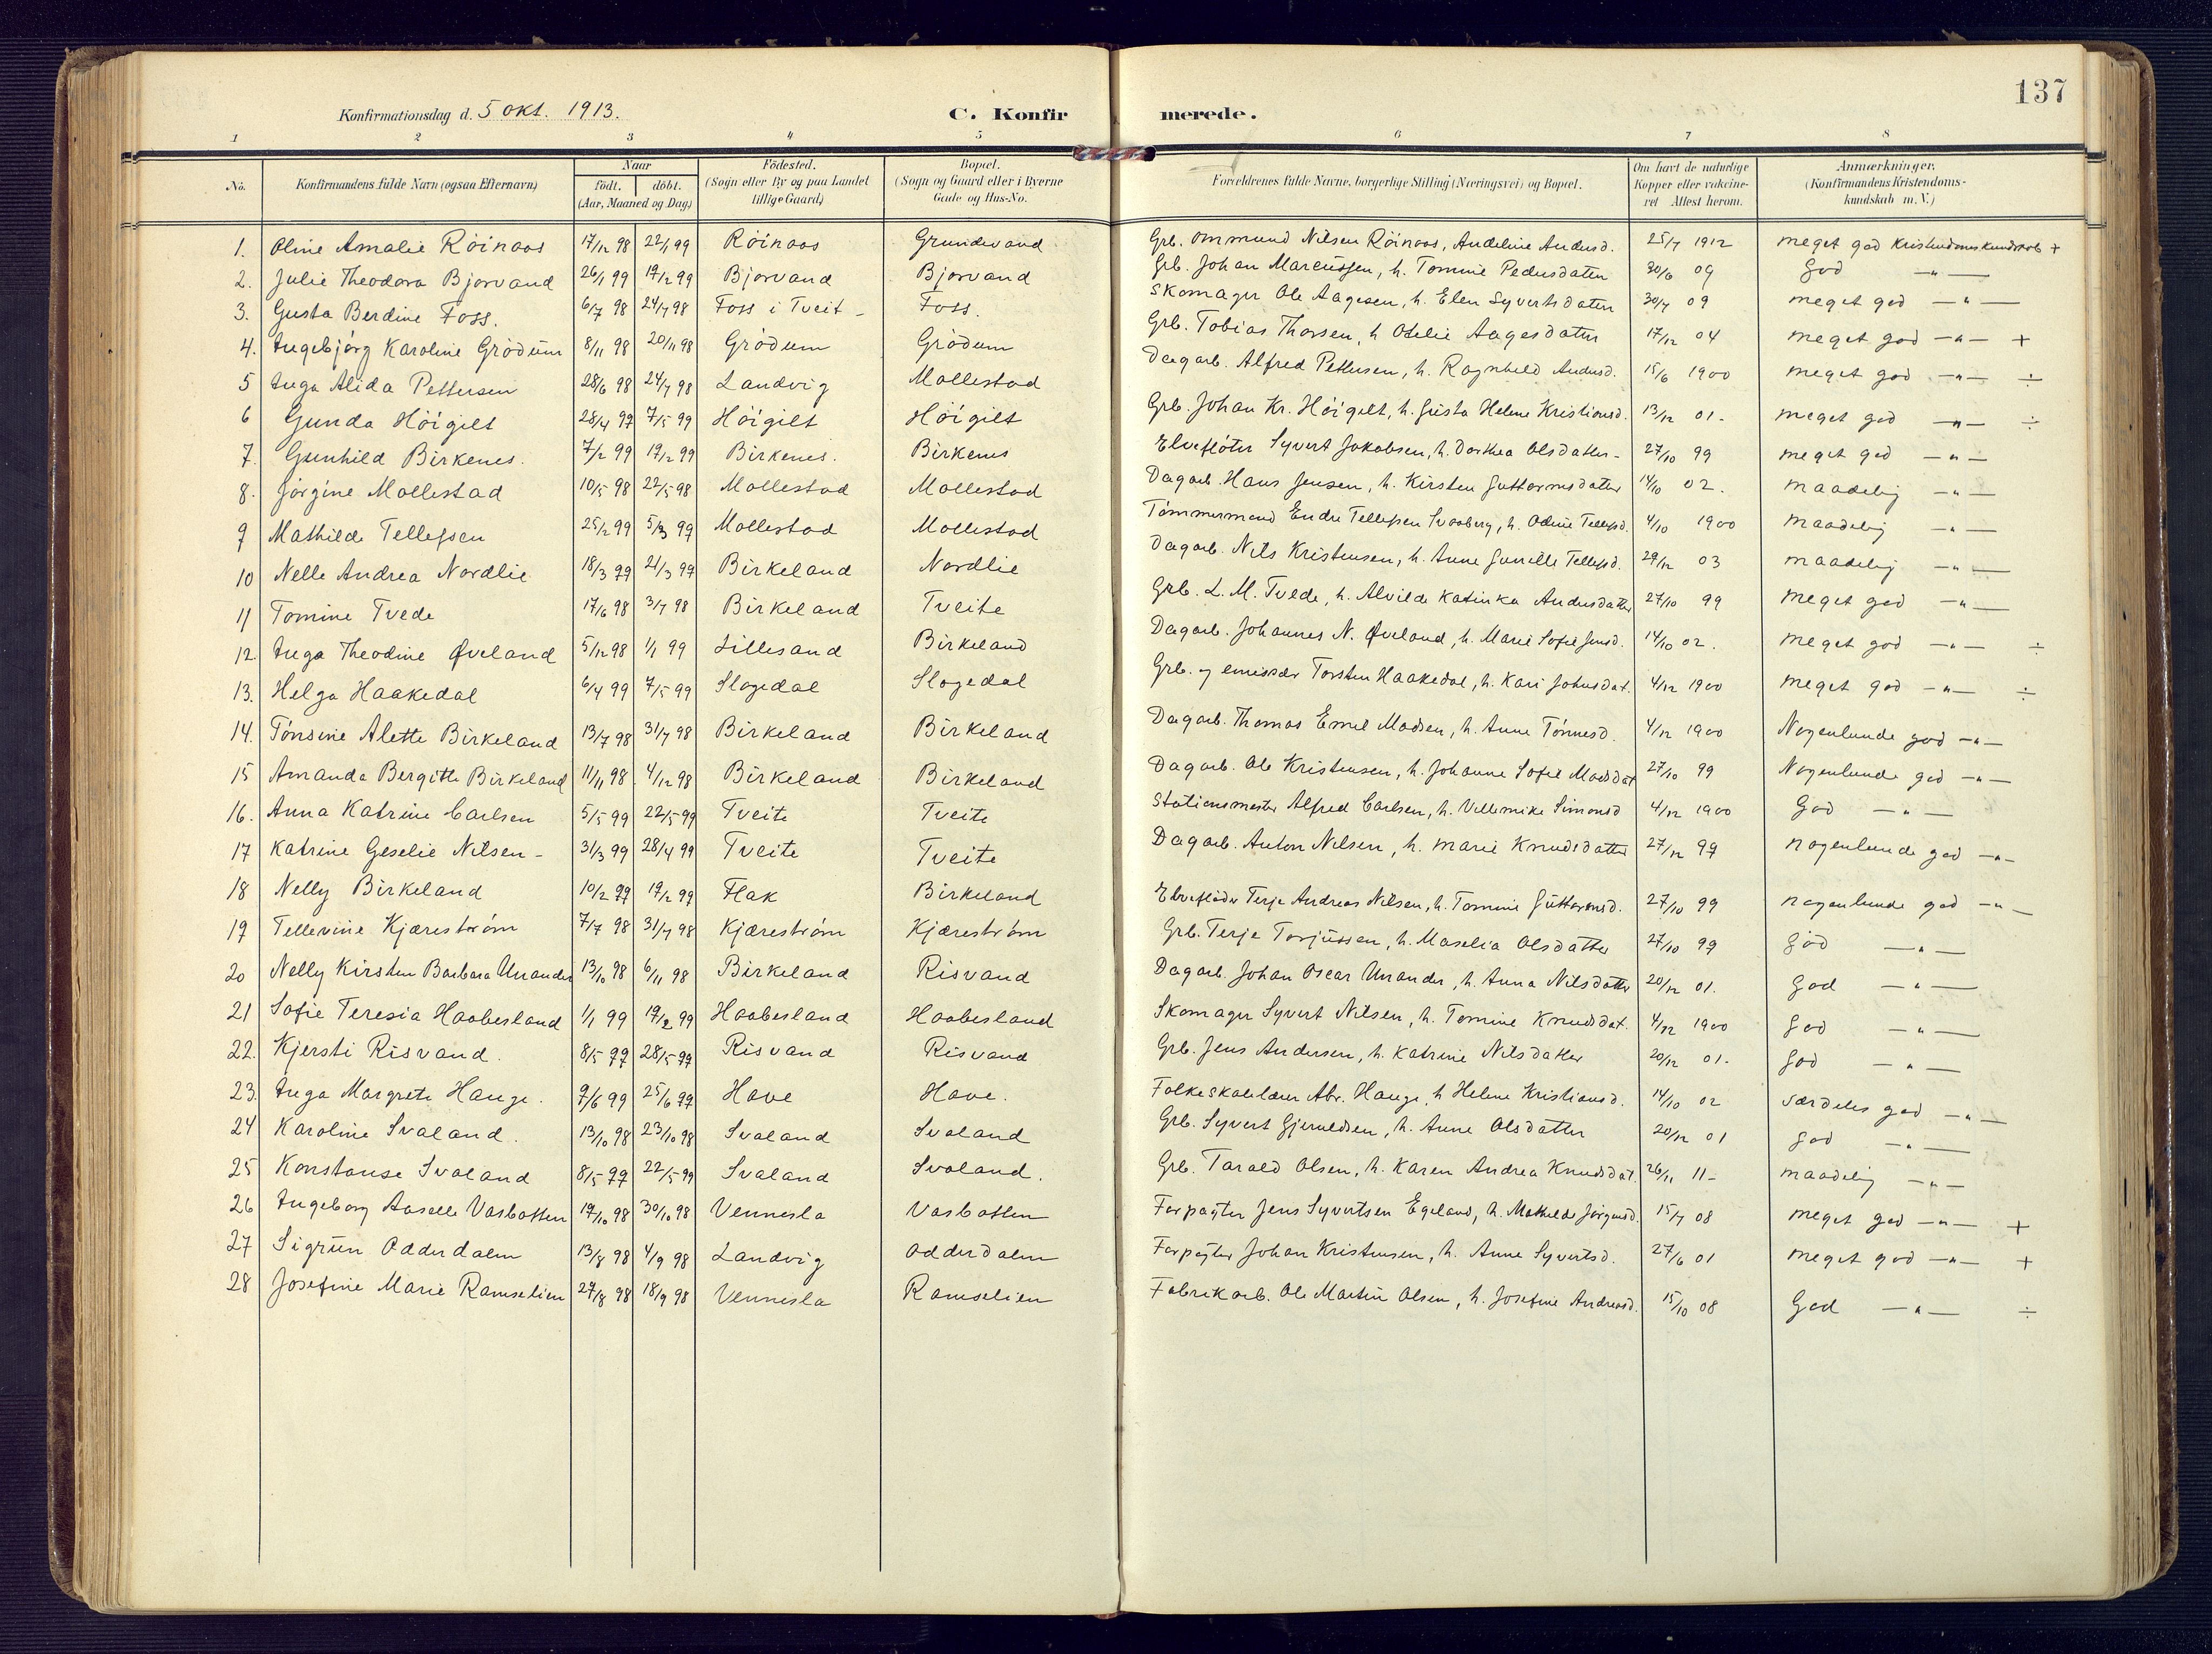 137
Konfirmationsdag d. 5 okt. 1913. C. Konfirmerede.
1 2 3 4 5 6 7 8
No. Konfirmandens fulde Navn (ogsaa Efternavn) Naar födt. döbt. (Aar, Maaned og Dag) Födested. (Sogn eller By og paa Landet tillige Gaard) Bopæl. (Sogn og Gaard eller i Byerne Gade og Hus-No. Forældrenes fulde Navne, borgerlige Stilling (Næringsvei) og Bopæl. Om havt de naturlige Kopper eller vakcineret Attest herom. Anmærkninger. (Konfirmandens Kristendomskundskab m. V.)
1. Oline Amalie Röinaas 17/12 98 22/1 99 Röinaas Grundevand Grb. Ommund Nilsen Röinaas, Andeline Andersd. 25/7 1912 meget god Kristendomskundskab +
2. Julie Theodora Bjorvand 26/1 99 19/2 99 Bjorvand Bjorvand Grb. Johan Marcussen, h. Tomine Pedersdatter 30/6 09 God —"—
3. Gusta Berdine Foss. 6/7 98 24/7 98 Foss i Tveit - Foss. Skomager Ole Aagesen, h. Elen Syvertsdatter 30/7 09 meget god —"—
4. Ingebjörg Karoline Grödum 8/11 98 20/11 98 Grödum Grödum Grb. Tobias Thorsen, h Otelie Aagesdatter 17/12 04 meget god —"— +
5 Inga Alida Pettersen 28/6 98 24/7 98 Landvig Mollestad Dagarb. Alfred Pettersen, h. Ragnhild Andersd. 15/6 1900 meget god —"— ÷
6 Gunda Höigilt 28/4 99 7/5 99 Höigilt Höigilt Grb. Johan Kr. Höigilt, h. Gusta Helene Kristiansd. 13/12 01. meget god —"— ÷
7. Gunhild Birkenes. 7/2 99 19/2 99 Birkenes. Birkenes Elveflöter Syvert Jakobsen, h. Dorthea Olsdatter- 27/10 99 meget god —"—
8. Jörgine Mollestad 10/5 98 22/5 98 Mollestad Mollestad Dagarb. Hans Jensen, h. Kirsten Guttormsdatter 14/10 02. maadelig —"—
9 Mathilde Tellefsen 25/2 99 5/3 99 Mollestad Mollestad Tömmermand Endre Tellefsen Svaaberg, h. Odine Tellefsd. 4/10 1900 maadelig —"—
10 Nelle Andrea Nordlie 18/3 99 21/3 99 Birkeland Nordlie Dagarb. Nils Kristensen, h. Anne Gunille Tellefsd. 29/12 03 maadelig —"—
11 Tomine Tvede 17/6 98 3/7 98 Birkeland Tveite Grb. L. M. Tvede, h. Alvilde Katinka Andersdatter 27/10 99 meget god —"—
12. Inga Theodine Øveland 5/12 98 1/1 99 Lillesand Birkeland Dagarb. Johannes N. Øveland, h. Marie Sofie Jensd. 14/10 02. meget god —"— ÷
13. Helga Haakedal 6/4 99 7/5 99 Slogedal Slogedal Grb. og emissær Torsten Haakedal, h. Kari Johnsdat. 4/12 1900 meget god —"— ÷
14. Tönsine Alette Birkeland 13/7 98 31/7 98 Birkeland Birkeland Dagarb. Thomas Emil Madsen, h. Anne Tönnesd. 4/12 1900 Nogenlunde god —"—
15 Amanda Bergitte Birkeland 11/11 98. 4/12 98 Birkeland Birkeland Dagarb. Ole Kristensen, h. Johanne Sofie Madsdat 27/10 99 Nogenlunde god —"—
16. Anna Katrine Carlsen 5/5 99 22/5 99 Tveite Tveite Stationsmester Alfred Carlsen, h. Villemike Simonsd 4/12 1900 God —"—
17 Katrine Geselie Nilsen - 31/3 99 28/4 99 Tveite Tveite Dagarb. Anton Nilsen, h. Marie Knudsdatter 27/12 99 nogenlunde god —"—
18 Nelly Birkeland 10/2 99 19/2 99 Flak Birkeland Elveflöder Terje Andreas Nilsen, h. Tomine Guttormsd. 27/10 99 nogenlunde god —"—
19 Tellevine Kjæreström 7/7 98 31/7 98 Kjæreström Kjæreström Grb. Terje Torjussen, h. Maselia Olsdatter 27/10 99 God —"—
20 Nelly Kirsten Barbara Unander 13/10 98 6/11 98 Birkeland Risvand Dagarb. Johan Oscar Unander, h. Anna Nilsdatter 20/12 01. God —"—
21 Sofie Teresia Haabesland 1/1 99 19/2 99 Haabesland Haabesland Skomager Syvert Nilsen, h. Tomine Knudsdat. 4/12 1900 God —"—
22. Kjersti Risvand. 8/5 99 28/5 99 Risvand Risvand Grb. Jens Andersen, h. Katrine Nilsdatter 20/12 01. God —"—
23. Inga Margrete Hauge. 9/6 99 25/6 99 Have Have. Folkeskolelærer Abr. Hauge, h Helene Kristiansd. 14/10 02 særdeles god —"—
24 Karoline Svaland. 13/10 98 23/10 98 Svaland Svaland Grb. Syvert Gjeruldsen, h. Anne Olsdatter 20/12 01 god —"—
25 Konstanse Svaland 8/5 99 22/5 99 Svaland Svaland. Grb. Tarald Olsen, h. Karen Andrea Knudsdat. 26/11 11- maadelig —"—
26 Ingeborg Aaselle Vasbotten 19/10 98 30/10 98 Vennesla Vasbotten Forpagter Jens Syvertsen Egeland, h. Mathilde Jörgensd. 15/7 08 meget god —"— +
27 Sigrun Odderdalen 13/8 98 4/9 98 Landvig Odderdalen Forpagter Johan Kristensen, h. Anne Syvertsd. 27/6 01 meget god —"— +
28 Josefine Marie Ramselien 27/8 98 18/9 98 Vennesla Ramselien Fabrikarb. Ole Martin Olsen, h. Josefine Andreasd. 15/10 08 God —"— ÷